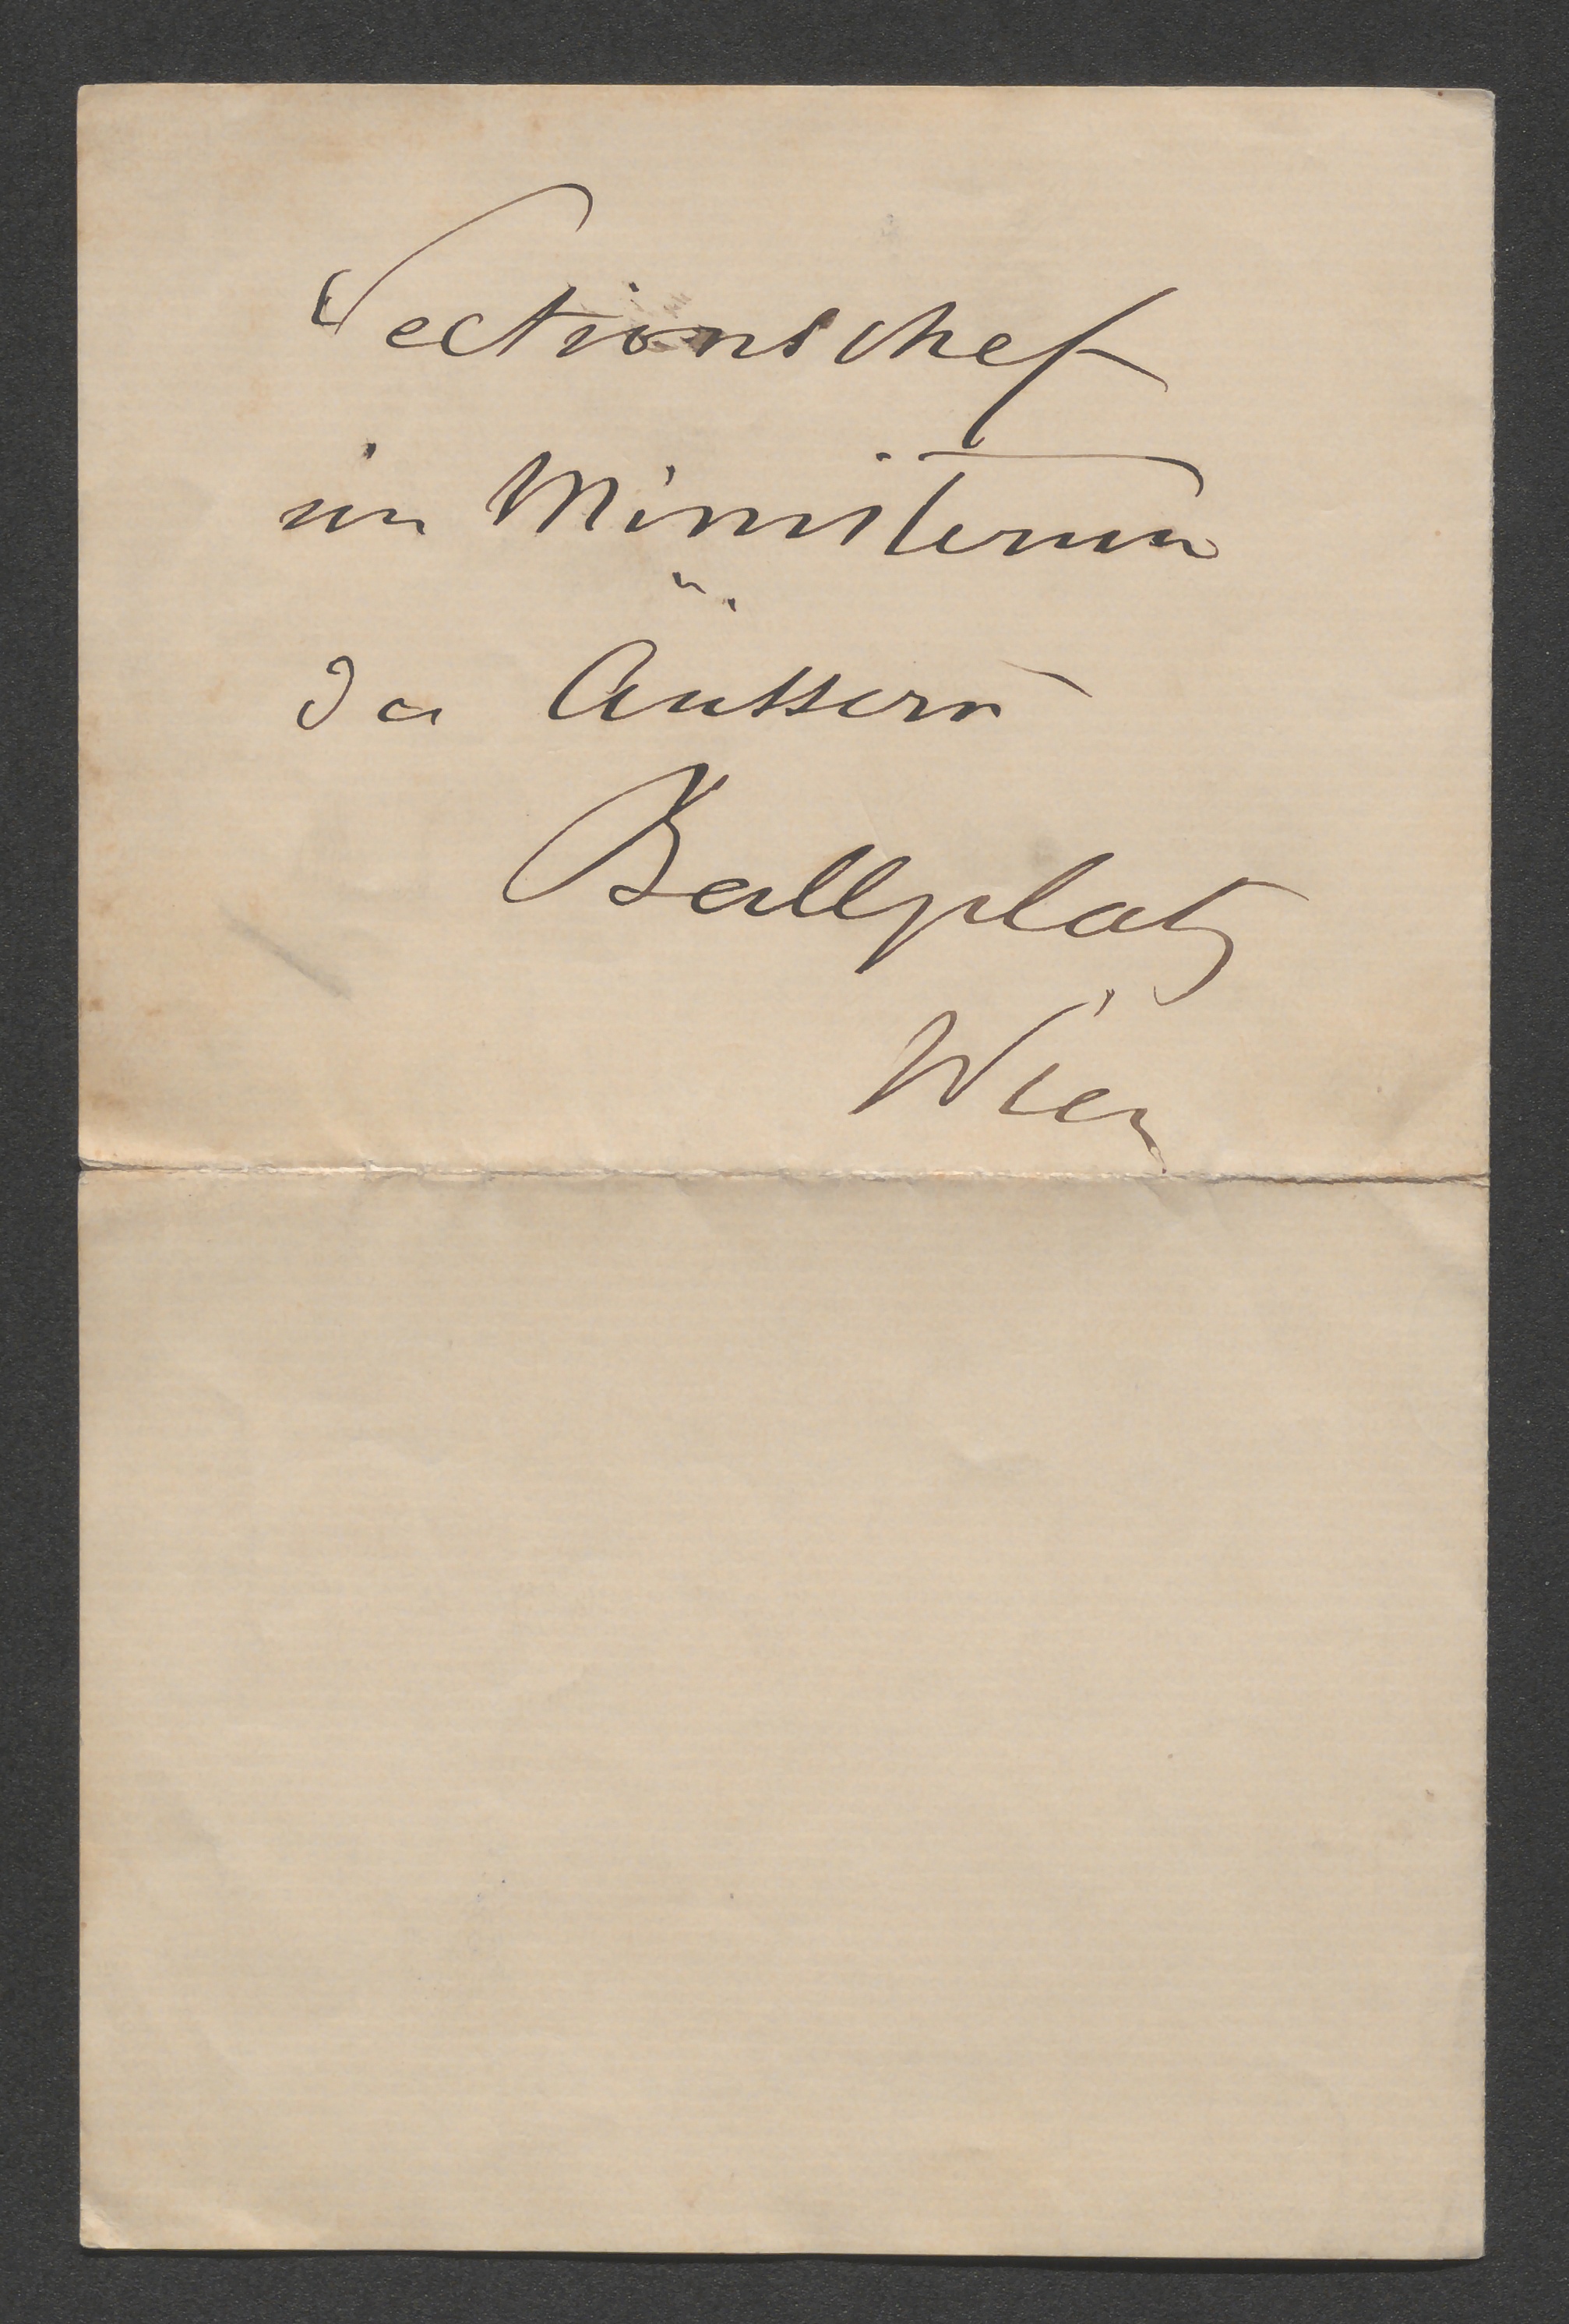 Sectionschef
im Ministerium
des Äussern
Ballplatz
Wien